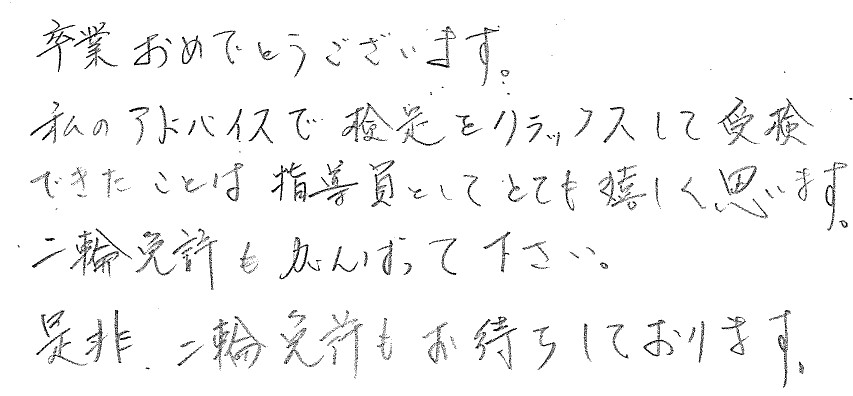 卒業おめでとうございます。
私のアドバイスで検定をリラックスして受検
できたことは指導員としてとても嬉しく思います。
二輪免許もがんばって下さい。
是非、二輪免許もお待ちしております。